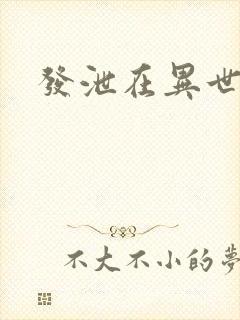 發泄在異世
不大不小的夢